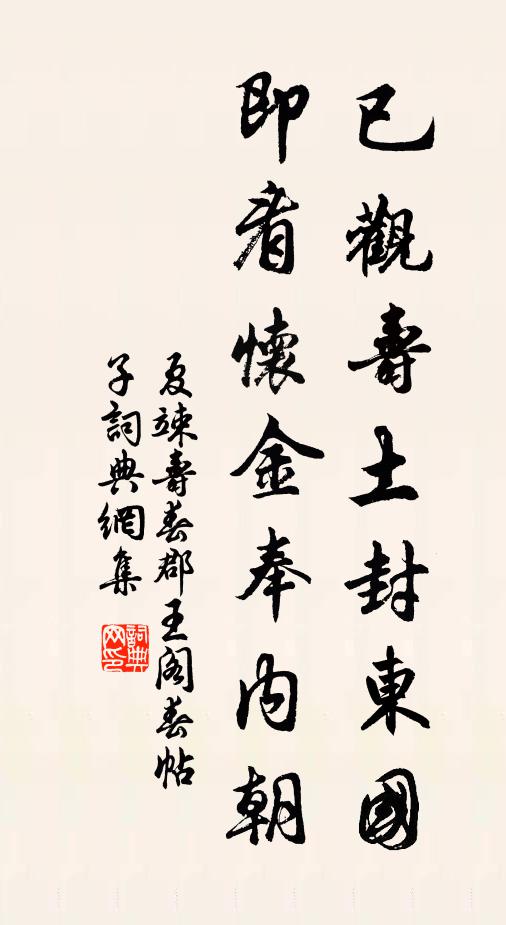 已觀壽土封東國
即看懷金奉內朝
夏竦壽春郡王閣春帖
子詞典網集
詞典網印